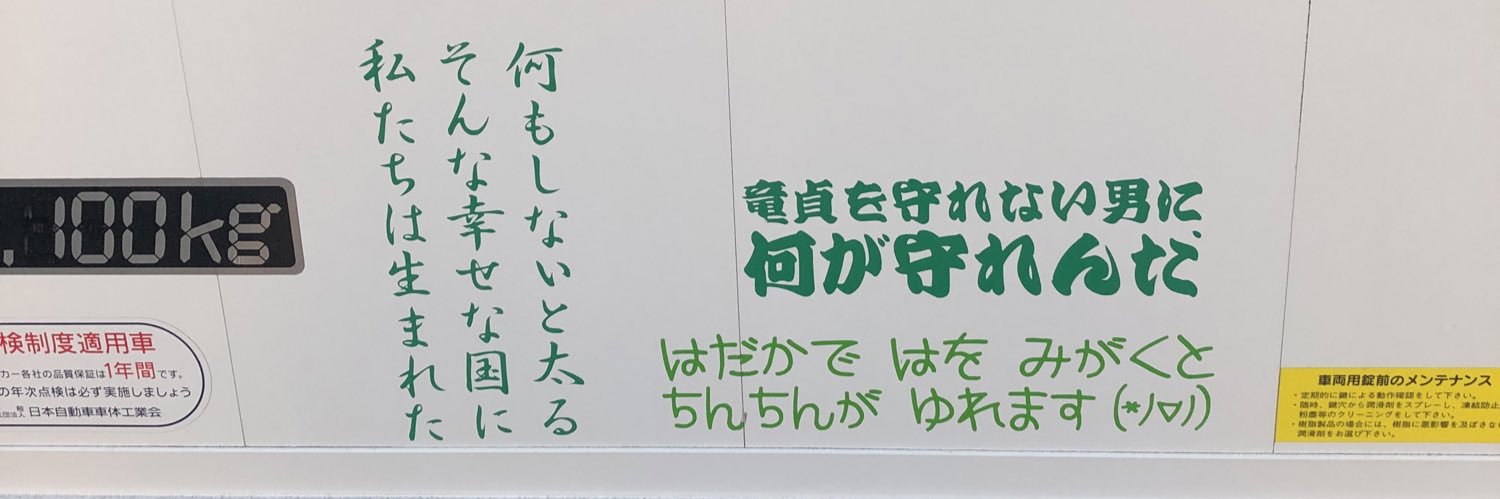 .100kg
検制度適用車
カー各社の品質保証は1年間です。
の年次点検は必ず実施しましょう
日本自動車車体工業会
何もしないと太る
そんな幸せな国に
私たちは生まれた
童貞を守れない男に、
何が守れんだ
はだかで はを みがくと
ちんちんが ゆれます(*ﾉ▽ﾉ)
車両用錠前のメンテナンス
・定期的に鍵による動作確認をして下さい。
・随時、鍵穴から潤滑剤をスプレーし、凍結防止
粉塵等のクリーニングをして下さい。
・樹脂製品の場合には、樹脂に悪影響を及ぼさな
潤滑剤をお選び下さい。